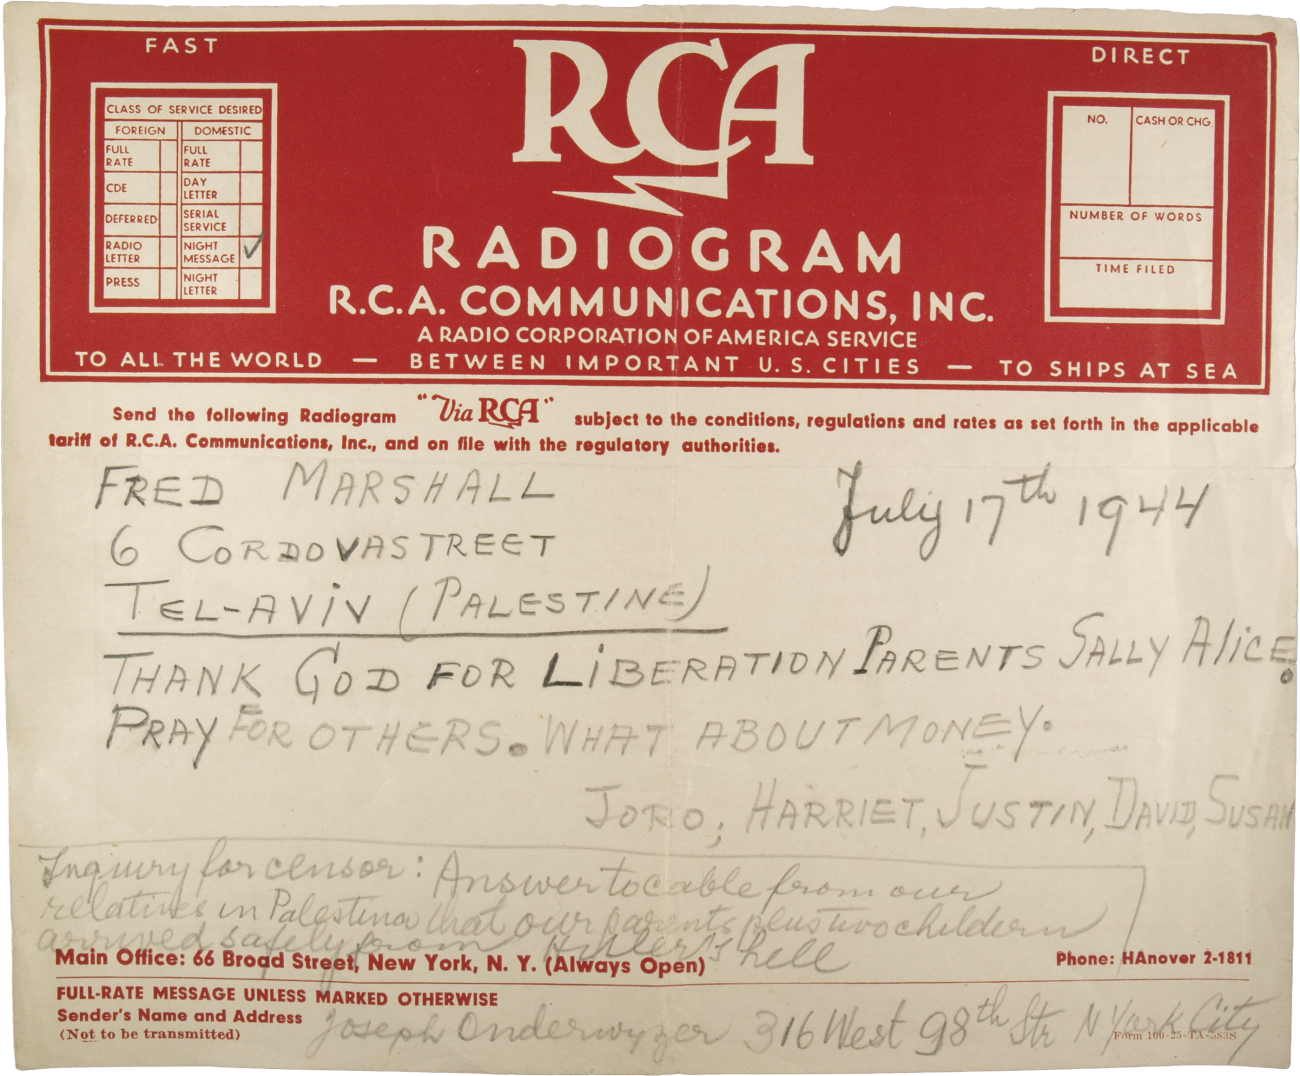 FAST
DIRECT
RCA
CLASS OF SERVICE DESIRED
FOREIGN DOMESTIC
FULL RATE FULL RATE
CDE DAY LETTER
DEFERRED SERIAL SERVICE
RADIO LETTER NIGHT MESSAGE ✓
PRESS NIGHT LETTER
NO. CASH OR CHG.
NUMBER OF WORDS
TIME FILED
RADIOGRAM
R.C.A. COMMUNICATIONS, INC.
A RADIO CORPORATION OF AMERICA SERVICE
TO ALL THE WORLD — BETWEEN IMPORTANT U.S. CITIES — TO SHIPS AT SEA
Send the following Radiogram "Via RCA" subject to the conditions, regulations and rates as set forth in the applicable
tariff of R.C.A. Communications, Inc., and on file with the regulatory authorities.
FRED MARSHALL
July 17th 1944
6 CORDOVASTREET
TEL-AVIV (PALESTINE)
THANK GOD FOR LIBERATION PARENTS SALLY ALICE.
PRAY FOR OTHERS. WHAT ABOUT MONEY.
JORO, HARRIET, JUSTIN, DAVID, SUSAN
Inquiry for censor: Answer to cable from our
relatives in Palestina that our parents plus two childern
arrived safely from Hitler's hell
Main Office: 66 Broad Street, New York, N. Y. (Always Open)
Phone: HAnover 2-1811
FULL-RATE MESSAGE UNLESS MARKED OTHERWISE
Sender's Name and Address Joseph Onderwyzer 316 West 98th Str N York City
(Not to be transmitted)
Form 100-25-TA-583S